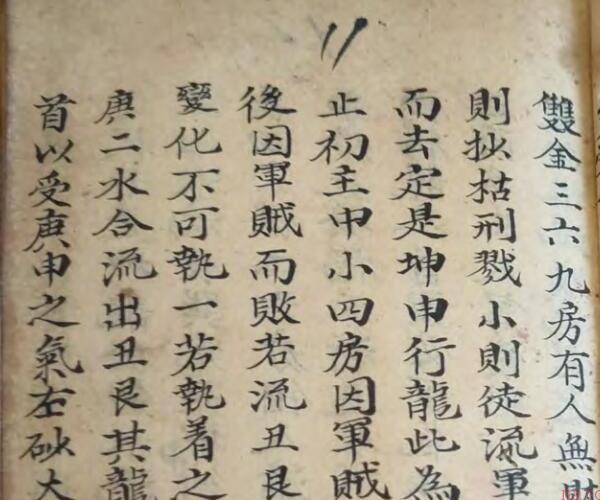 雙金三六九房有人無財
則扙枯刑戮小則徒流軍
而去定是坤申行龍此為
止初主中小四房因軍賊
後因軍賊而敗若流丑艮
變化不可執一若執着之
庚二水合流出丑艮其龍
首以受庚申之氣右砂大